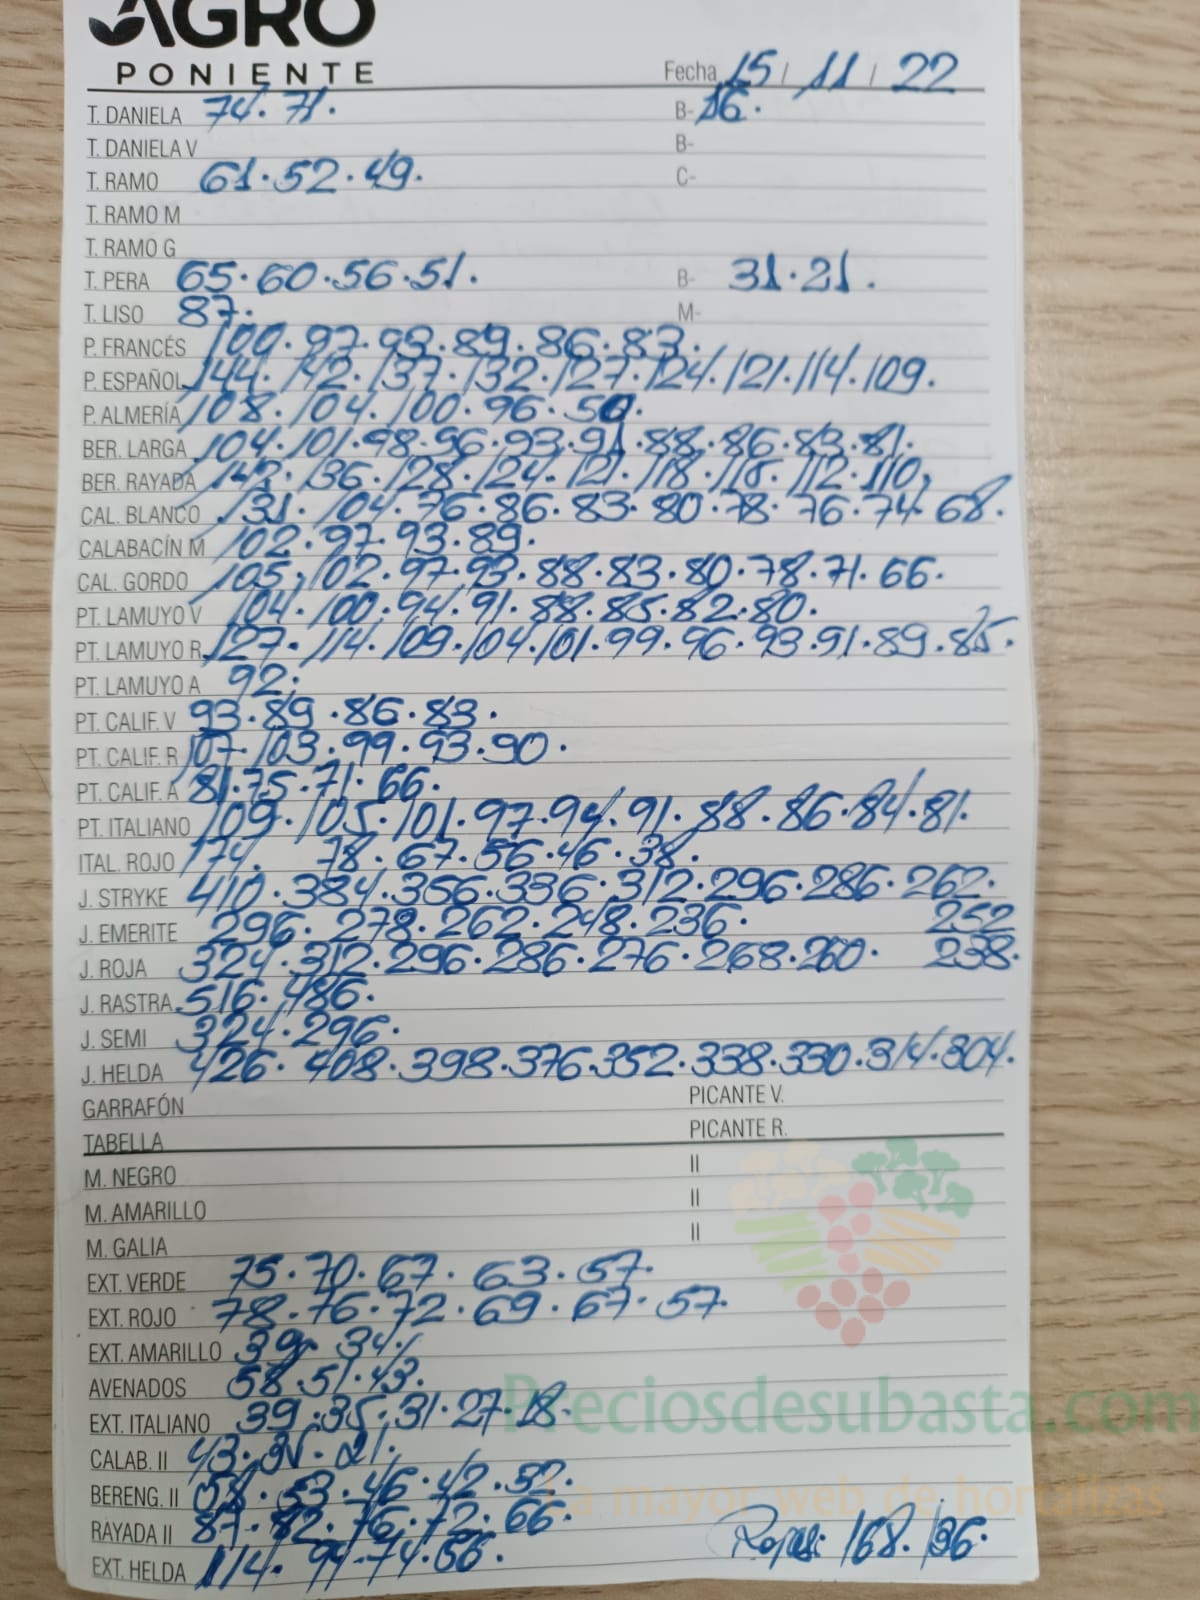 AGRO
PONIENTE
Fecha 15 / 11 / 22
T. DANELA 74. 71. B- 16.
T. DANIELA V B-
T. RAMO 61. 52. 49. C-
T. RAMO M
T. RAMO G
T. PERA 65. 60. 56. 51. B- 31. 21.
T. LISO 87. M-
P. FRANCÉS 100. 97. 93. 89. 86. 83.
P. ESPAÑOL 144. 142. 137. 132. 127. 124. 121. 114. 109.
P. ALMERÍA 108. 104. 100. 96. 50.
BER. LARGA 104. 101. 98. 96. 93. 91. 88. 86. 83. 81.
BER. RAYADA 142. 136. 128. 124. 121. 118. 116. 112. 110.
CAL. BLANCO 131. 104. 76. 86. 83. 80. 78. 76. 74. 68.
CALABACÍN M 102. 97. 93. 89.
CAL. GORDO 105. 102. 97. 93. 88. 83. 80. 78. 71. 66.
PT. LAMUYO V 104. 100. 94. 91. 88. 85. 82. 80.
PT. LAMUYO R 127. 114. 109. 104. 101. 99. 96. 93. 91. 89. 85.
PT. LAMUYO A 92.
PT. CALIF. V 93. 89. 86. 83.
PT. CALIF. R 107. 103. 99. 93. 90.
PT. CALIF. A 81. 75. 71. 66.
PT. ITALIANO 109. 105. 101. 97. 94. 91. 88. 86. 84. 81.
ITAL. ROJO 174. 78. 67. 56. 46. 38.
J. STRYKE 410. 384. 356. 336. 312. 296. 286. 262.
J. EMERITE 296. 278. 262. 248. 236. 252
J. ROJA 324. 312. 296. 286. 276. 268. 260. 238.
J. RASTRA 516. 486.
J. SEMI 324. 296.
J. HELDA 426. 408. 398. 376. 352. 338. 330. 314. 304.
GARRAFÓN PICANTE V.
TABELLA PICANTE R.
M. NEGRO II
M. AMARILLO II
M. GALIA II
EXT. VERDE 75. 70. 67. 63. 57.
EXT. ROJO 78. 76. 72. 69. 67. 57.
EXT. AMARILLO 39. 34.
AVENADOS 58. 51. 43.
EXT. ITALIANO 39. 35. 31. 27. 18.
Preciosdesubasta.com
CALAB. II 43. 21.
BERENG. II 53. 46. 42. 32.
la mayor web de hortalizas
RAYADA II 87. 82. 76. 72. 66.
EXT. HELDA 114. 94. 74. 56. Rojas: 168. 136.